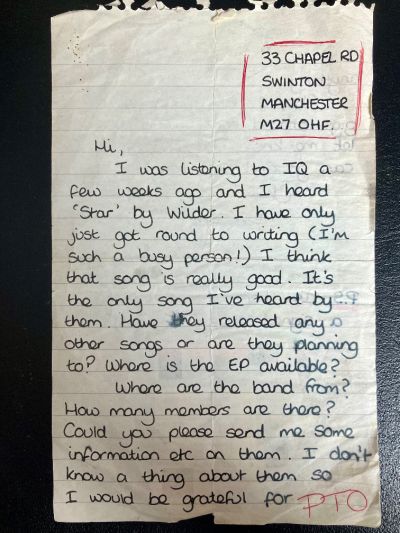 33 CHAPEL RD
SWINTON
MANCHESTER
M27 0HF.
Hi,
I was listening to IQ a
few weeks ago and I heard
'Star' by Wilder. I have only
just got round to writing (I'm
such a busy person!) I think
that song is really good. It's
the only song I've heard by
them. Have they released any
other songs or are they planning
to? Where is the EP available?
Where are the band from?
How many members are there?
Could you please send me some
information etc on them. I don't
know a thing about them so
I would be grateful for PTO